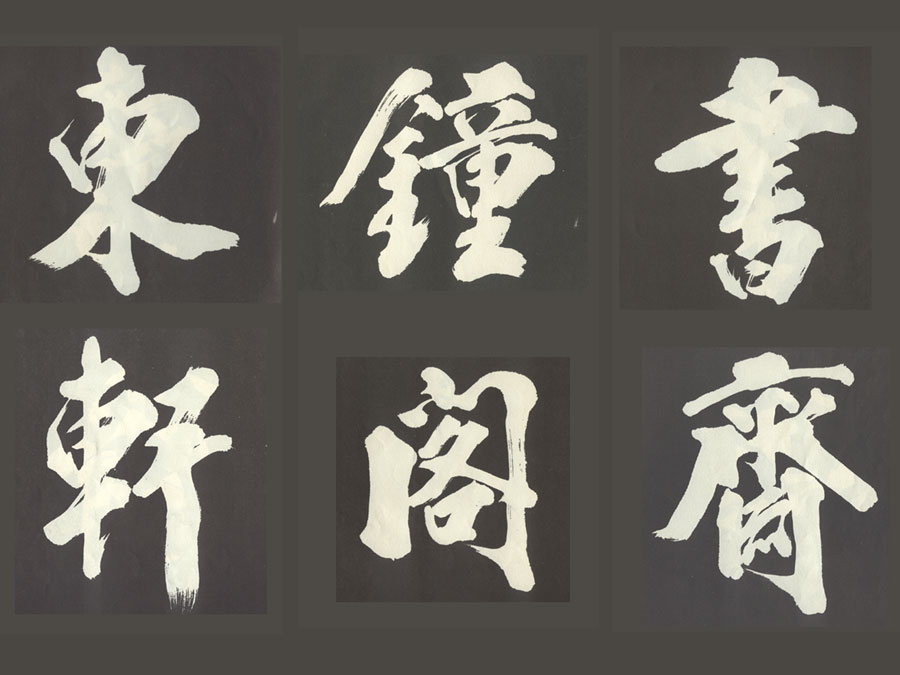 東軒
鐘阁
書齋